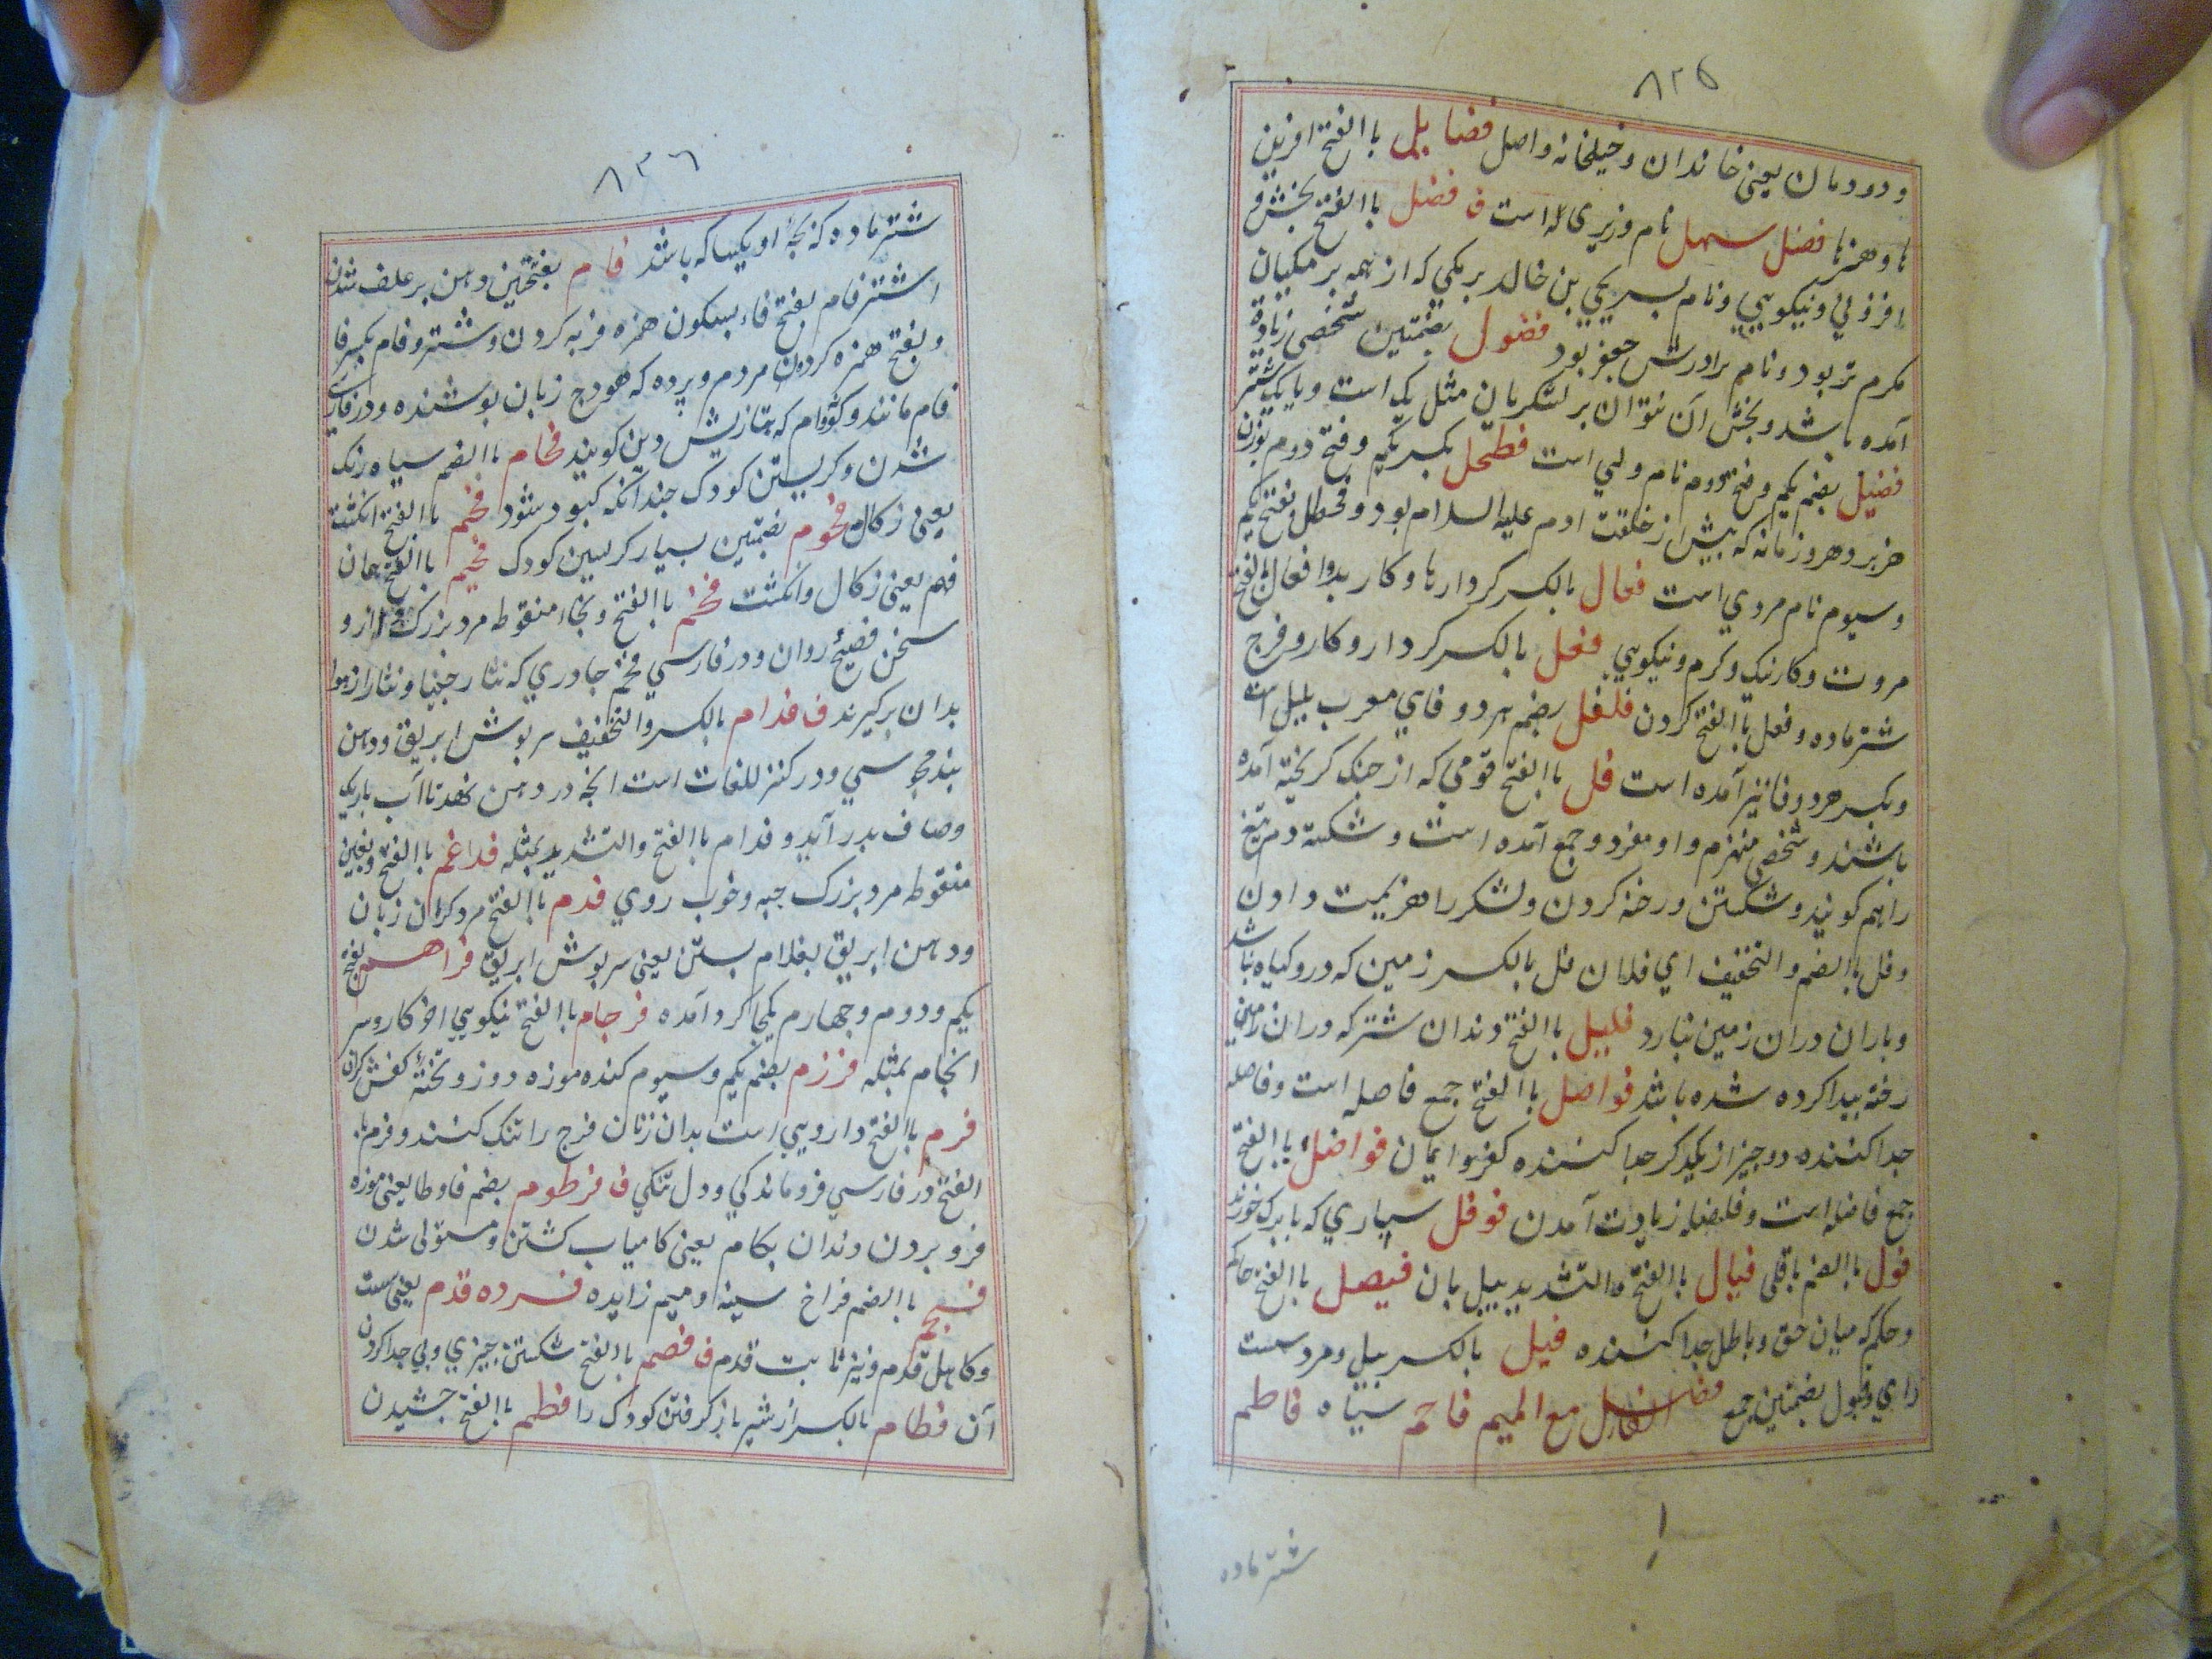 ٨٢٥
ودودمان یعنی خاندان وخیلخانه واصل فضایل باالفتح افزین
ها وهنرها فضل سهل نام وزیری است ف فضل باالفتح بخش و
افزونی ونیکویی ونام پسر یحیی بن خالد برمکی که از همه برمکیان
مکرم تر بود ونام برادرش جعفر بود فضول بضمتین شخصی زیاده
آمده باشد وبخش آن نتوان بر لشکریان مثل یک است ویا یک شتر
فضیل بضم یکم وفتح دوم نام ولی است فطحل بکسر یکم وفتح دوم بوزن
هزبر وهر وزمانه که پیش از خلقت ادم علیه السلام بود وفحطل بفتح یکم
وسیوم نام مردی است فعال بالکسر کردارها وکار بد وافعال باالفتح
مروت وکار نیک وکرم ونیکویی فعل بالکسر کردار وکار وفرج
شتر ماده وفعل باالفتح کردن فلفل بضم هر دو فای معرب پلپل است
وبکسر هر دو فا نیز آمده است فل باالفتح قومی که از جنک کریخته آمده
باشند وشخصی منهزم واو مفرد وجمع آمده است وشکسته دم تیغ
را هم کویند وشکستن ورخنه کردن ولشکر را هزیمت دادن
وفل باالضم والتخفیف ای فلان فل بالکسر زمین که درو کیاه نباشد
وباران دران زمین نبارد فلیل باالفتح دندان شتر که دران زمین
رخنه پیدا کرده شده باشد فواصل باالفتح جمع فاصله است وفاصله
جدا کننده دو چیز از یکدیکر جدا کننده کفر وایمان فواضل باالفتح
جمع فاضله است وفاضله زیادت آمدن فوفل سپاری که با برک خورند
فول باالضم باقلی فیال باالفتح والتشدید پیل بان فیصل باالفتح حاکم
وحکم که میان حق وباطل جدا کننده فیل بالکسر پیل ومرد سست
رای وفیول بضمتین جمع مع المیم فاحم سیاه فاطم
شتر ماده
٨٢٦
شتر ماده که بچهٔ او یکساکه باشد فام بفتحتین دهن بر علف شدن
اشتر فام بفتح فاء بسکون همزه فربه کردن وشتر وفام بکسر فا
وبفتح همزه کردن مردم وپرده که هودج زنان پوشنده ودر فارسی
فام مانند وکون وام که بتازیش دین کویند فحام باالضم سیاه رنک
شدن وکریستن کودک چندانکه کبود شود فحم باالفتح انکشت
یعنی زکال فحوم بضمتین بسیار کریستن کودک فحیم باالفتح همان
فحم یعنی زکال وانکشت فخم باالفتح وبخاء منقوطه مرد بزرک قدر و
سخن فصیح روان ودر فارسی فخم چادری که نثار چنیان ونثار از هوا
بدان برکیرند ف فدام بالکسر والتخفیف سرپوش ابریق ودهن
بند مجوسی ودر کنز اللغات است انچه در دهن نهند تا آب باریک
وصاف بدر آید وفدام باالفتح والتشدید بمثله فداغم باالفتح وبغین
منقوطه مرد بزرک جبه وخوب روی فدم باالفتح مرد کران زبان
ودهن ابریق بفدام بستن یعنی سرپوش ابریق فراهم بفتح
یکم ودوم وچهارم یکجا کرد آمده فرجام باالفتح نیکویی اخر کار وسر
انجام بمثله فرزم بضم یکم وسیوم کنده موزه دوز وتختهٔ کفش کران
فرم باالفتح دارویی است بدان زنان فرج را تنک کنند وفرم با
الفتح در فارسی فروماندکی ودل تنکی ف فرطوم بضم فا وطا یعنی موزه
فرو بردن دندان بکام یعنی کامیاب کشتن ومستولی شدن
فسحم باالضم فراخ سینه ومیم زایده فسرده قدم یعنی سست
وکاهل قدم ونیز ثابت قدم ف فصم باالفتح شکستن چیزی وبی جدا کردن
آن فطام بالکسر از شیر باز کرفتن کودک را فطم باالفتح چشیدن